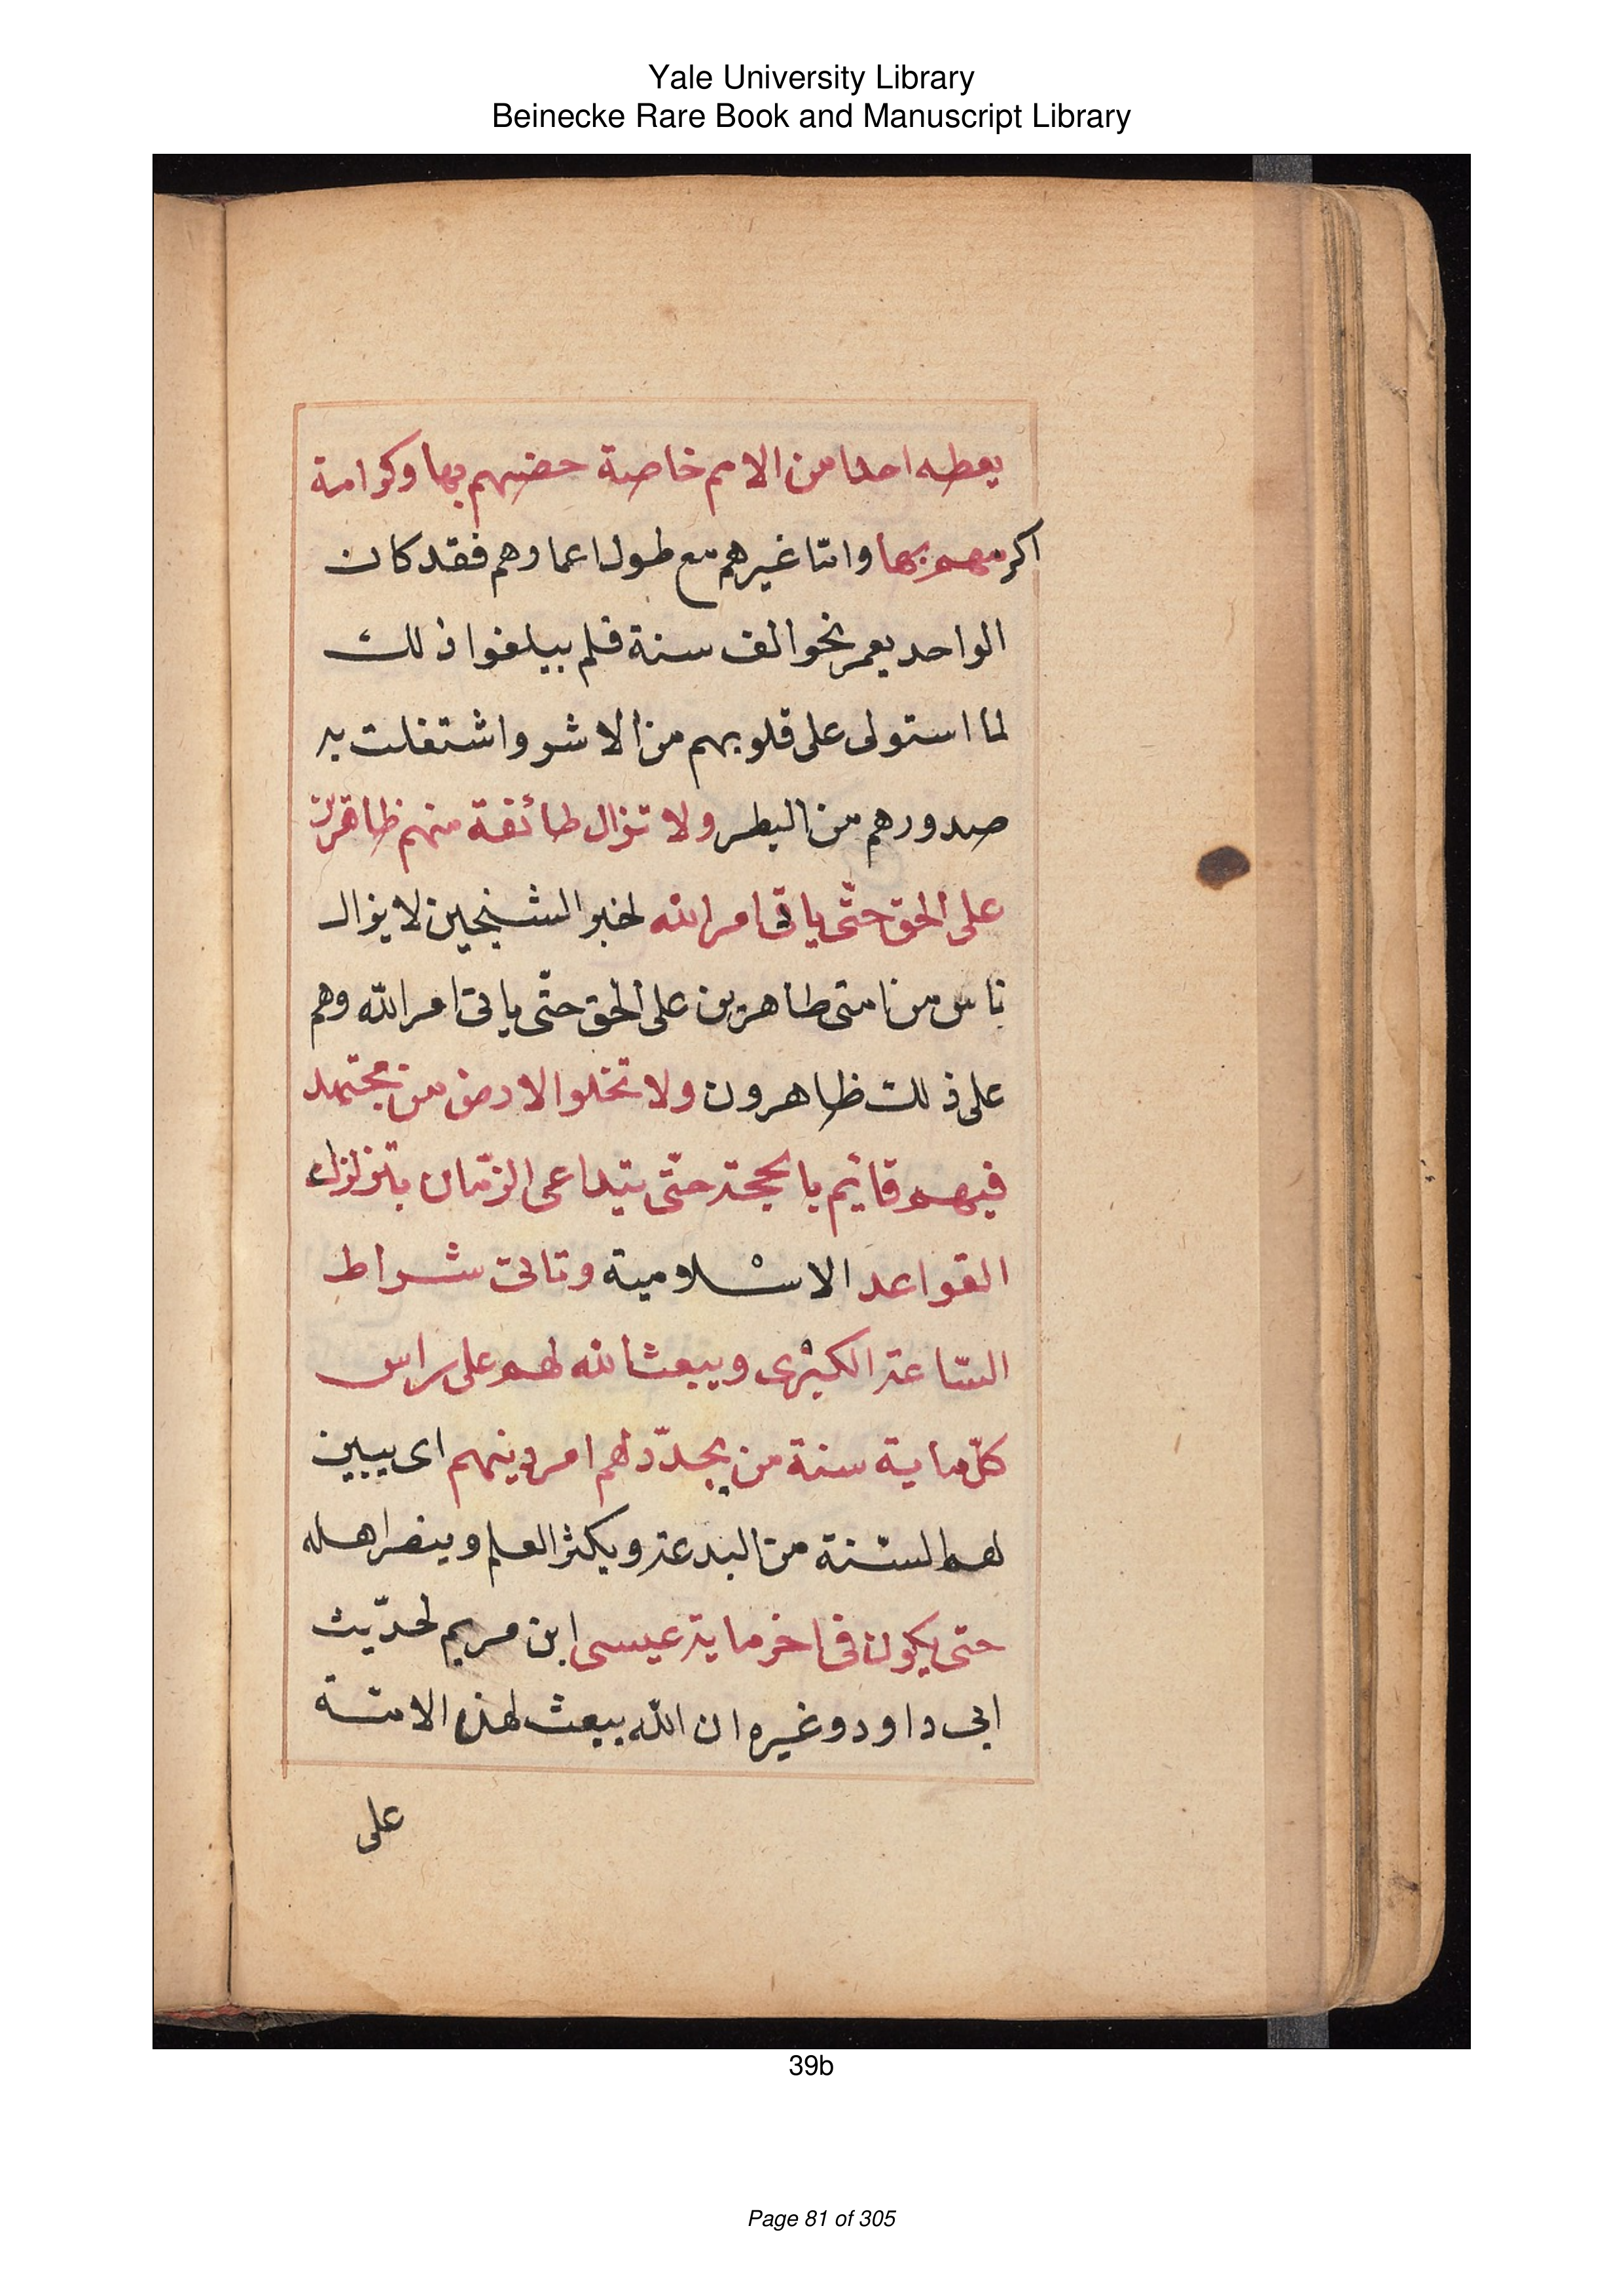 Yale University Library
Beinecke Rare Book and Manuscript Library
يعطه احدا من الامم خاصة خصهم بها وكرامة
اكرمهم بها وامّا غيرهم مع طول اعمارهم فقد كان
الواحد يعمر نحو الف سنة فلم يبلغوا ذلك
لما استولى على قلوبهم من الاشر واشتغلت به
صدورهم من البطر ولا تزال طائفة منهم ظاهرين
على الحق حتّى ياتى امر الله لخبر الشيخين لا يزال
ناس من امتى ظاهرين على الحق حتّى ياتى امر الله وهم
على ذلك ظاهرون ولا تخلوا الارض من مجتهد
فيهم قائم بالحجة حتّى يتداعى الزّمان بتزلزل
القواعد الاسْلامية وتاتى شراط
السّاعة الكبْرى ويبعث الله لهم على راس
كلّ ماية سنة من يجدّد لهم امر دينهم اى يبين
لهم السّنة من البدعة ويكثر العلم وينصر اهله
حتى يكون فى اخر ماية عيسى ابن مريم لحدّيث
ابى داود وغيره ان اللّه يبعث لهذه الامّة
على
39b
Page 81 of 305